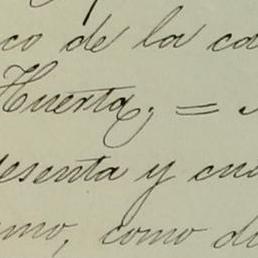 co de la ca
Huerta; =
esenta y cua
smo, como di